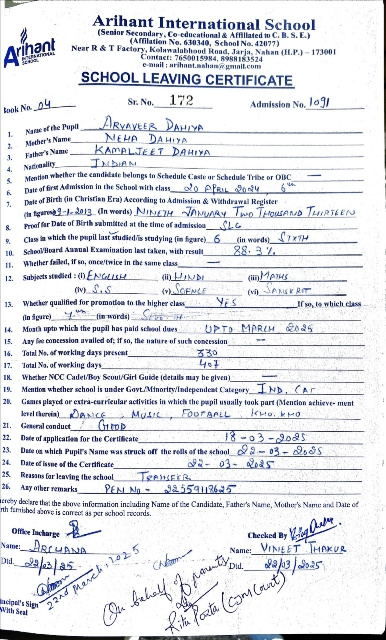 Arihant International School
(Senior Secondary, Co-educational & Affiliated to C. B. S. E.)
(Affiliation No. 630340, School No. 42077)
Near R & T Factory, Kolawalabhood Road, Jarja, Nahan (H.P.) – 173001
Contact: 7650015984, 8988183524
e-mail : arihant.nahan@gmail.com
Arihant
INTERNATIONAL SCHOOL
SCHOOL LEAVING CERTIFICATE
Book No. 04 Sr. No. 172 Admission No. 1091
1. Name of the Pupil ARVAVEER DAHIYA
2. Mother's Name NEHA DAHIYA
3. Father's Name KAMALJEET DAHIYA
4. Nationality INDIAN
5. Mention whether the candidate belongs to Schedule Caste or Schedule Tribe or OBC —
6. Date of first Admission in the School with class 20 APRIL 2024, 6th
7. Date of Birth (in Christian Era) According to Admission & Withdrawal Register
(in figures) 9-1-2013 (In words) NINETH JANUARY TWO THOUSAND THIRTEEN
8. Proof for Date of Birth submitted at the time of admission SLC
9. Class in which the pupil last studied/is studying (in figure) 6 (in words) SIXTH
10. School/Board Annual Examination last taken, with result 88.3%
11. Whether failed, if so, once/twice in the same class —
12. Subjects studied : (i) ENGLISH (ii) HINDI (iii) MATHS
(iv) S.S (v) SCIENCE (vi) SANSKRIT
13. Whether qualified for promotion to the higher class YES If so, to which class
(in figure) 7th (in words) SEVENTH
14. Month upto which the pupil has paid school dues UPTO MARCH 2025
15. Any fee concession availed of; if so, the nature of such concession —
16. Total No. of working days present 330
17. Total No. of working days 407
18. Whether NCC Cadet/Boy Scout/Girl Guide (details may be given) —
19. Mention whether school is under Govt./Minority/Independent Category IND. CAT
20. Games played or extra-curricular activities in which the pupil usually took part (Mention achieve- ment
level therein) DANCE, MUSIC, FOOTBALL KHO.KHO
21. General conduct GOOD
22. Date of application for the Certificate 18-03-2025
23. Date on which Pupil's Name was struck off the rolls of the school 22-03-2025
24. Date of issue of the Certificate 22-03-2025
25. Reasons for leaving the school TRANSFER
26. Any other remarks PEN No - 22559118625
hereby declare that the above information including Name of the Candidate, Father's Name, Mother's Name and Date of
rth furnished above is correct as per school records.
Office Incharge Checked By
Name: ARCHANA Name: VINEET THAKUR
Dtd. 22/03/25 Dtd. 22/03/2025
22nd March, 2025
incipal's Sign
With Seal
On behalf of parents